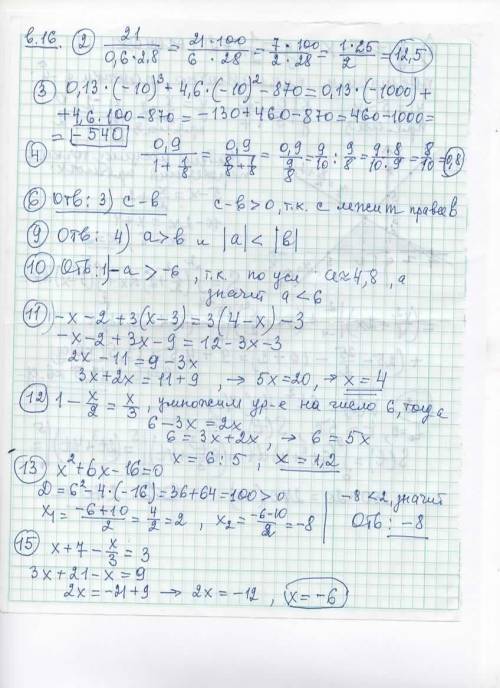 в.16. (2) 21/(0,6·2,8) = (21·100)/(6·28) = (7·100)/(2·28) = (1·25)/2 = 12,5
(3) 0,13·(-10)³ + 4,6·(-10)² - 870 = 0,13·(-1000) +
+ 4,6·100 - 870 = -130 + 460 - 870 = 460 - 1000 =
= -540
(4) 0,9/(1 + 1/8) = 0,9/(8/8 + 1/8) = 0,9/(9/8) = 9/10 : 9/8 = (9·8)/(10·9) = 8/10 = 0,8
(6) Отв: 3) c - в c - в > 0, т.к. c лежит правее в
(9) Отв: 4) a > в и |a| < |в|
(10) Отв: 1) -a > -6, т.к. по усл a ≈ 4,8, а
значит a < 6
(11) -x - 2 + 3(x - 3) = 3(4 - x) - 3
-x - 2 + 3x - 9 = 12 - 3x - 3
2x - 11 = 9 - 3x
3x + 2x = 11 + 9, → 5x = 20, → x = 4
(12) 1 - x/2 = x/3, умножим ур-е на число 6, тогда
6 - 3x = 2x
6 = 3x + 2x, → 6 = 5x
x = 6 : 5, x = 1,2
(13) x² + 6x - 16 = 0
D = 6² - 4·(-16) = 36 + 64 = 100 > 0
x₁ = (-6 + 10)/2 = 4/2 = 2, x₂ = (-6 - 10)/2 = -8
-8 < 2, значит
Отв: -8
(15) x + 7 - x/3 = 3
3x + 21 - x = 9
2x = -21 + 9 → 2x = -12, x = -6